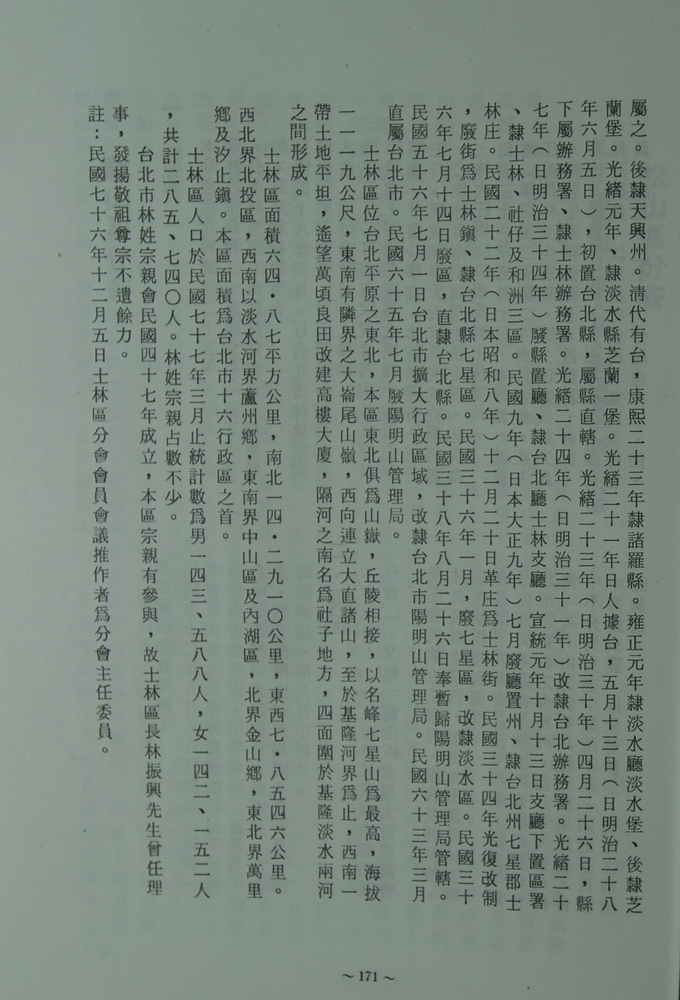 屬之。後隸天興州。清代有台，康熙二十三年隸諸羅縣。雍正元年隸淡水廳淡水堡、後隸芝
蘭堡。光緒元年、隸淡水縣芝蘭一堡。光緒二十一年日人據台，五月十三日（日明治二十八
年六月五日），初置台北縣，屬縣直轄。光緒二十三年（日明治三十年）四月二十六日，縣
下屬辦務署、隸士林辦務署。光緒二十四年（日明治三十一年）改隸台北辦務署。光緒二十
七年（日明治三十四年）廢縣置廳、隸台北廳士林支廳。宣統元年十月十三日支廳下置區署
、隸士林、社仔及和洲三區。民國九年（日本大正九年）七月廢廳置州、隸台北州七星郡士
林庄。民國二十二年（日本昭和八年）十二月二十日革庄為士林街。民國三十四年光復改制
，廢街為士林鎮、隸台北縣七星區。民國三十六年一月，廢七星區，改隸淡水區。民國三十
六年七月十四日廢區，直隸台北縣。民國三十八年八月二十六日奉暫歸陽明山管理局管轄。
民國五十六年七月一日台北市擴大行政區域，改隸台北市陽明山管理局。民國六十三年三月
直屬台北市。民國六十五年七月廢陽明山管理局。
士林區位台北平原之東北，本區東北俱為山嶽，丘陵相接，以名峰七星山為最高，海拔
一一一九公尺，東南有隣界之大崙尾山嶺，西向連立大直諸山，至於基隆河界為止，西南一
帶土地平坦，遙望萬頃良田改建高樓大廈，隔河之南名為社子地方，四面圍於基隆淡水兩河
之間形成。
士林區面積六四・八七平方公里，南北一四・二九一〇公里，東西七・八五四六公里。
西北界北投區，西南以淡水河界蘆州鄉，東南界中山區及內湖區，北界金山鄉，東北界萬里
鄉及汐止鎮。本區面積為台北市十六行政區之首。
士林區人口於民國七十七年三月止統計數為男一四三、五八八人，女一四二、一五二人
，共計二八五、七四〇人。林姓宗親占數不少。
台北市林姓宗親會民國四十七年成立，本區宗親有參與，故士林區長林振興先生曾任理
事，發揚敬祖尊宗不遺餘力。
註：民國七十六年十二月五日士林區分會會員會議推作者為分會主任委員。
～171～